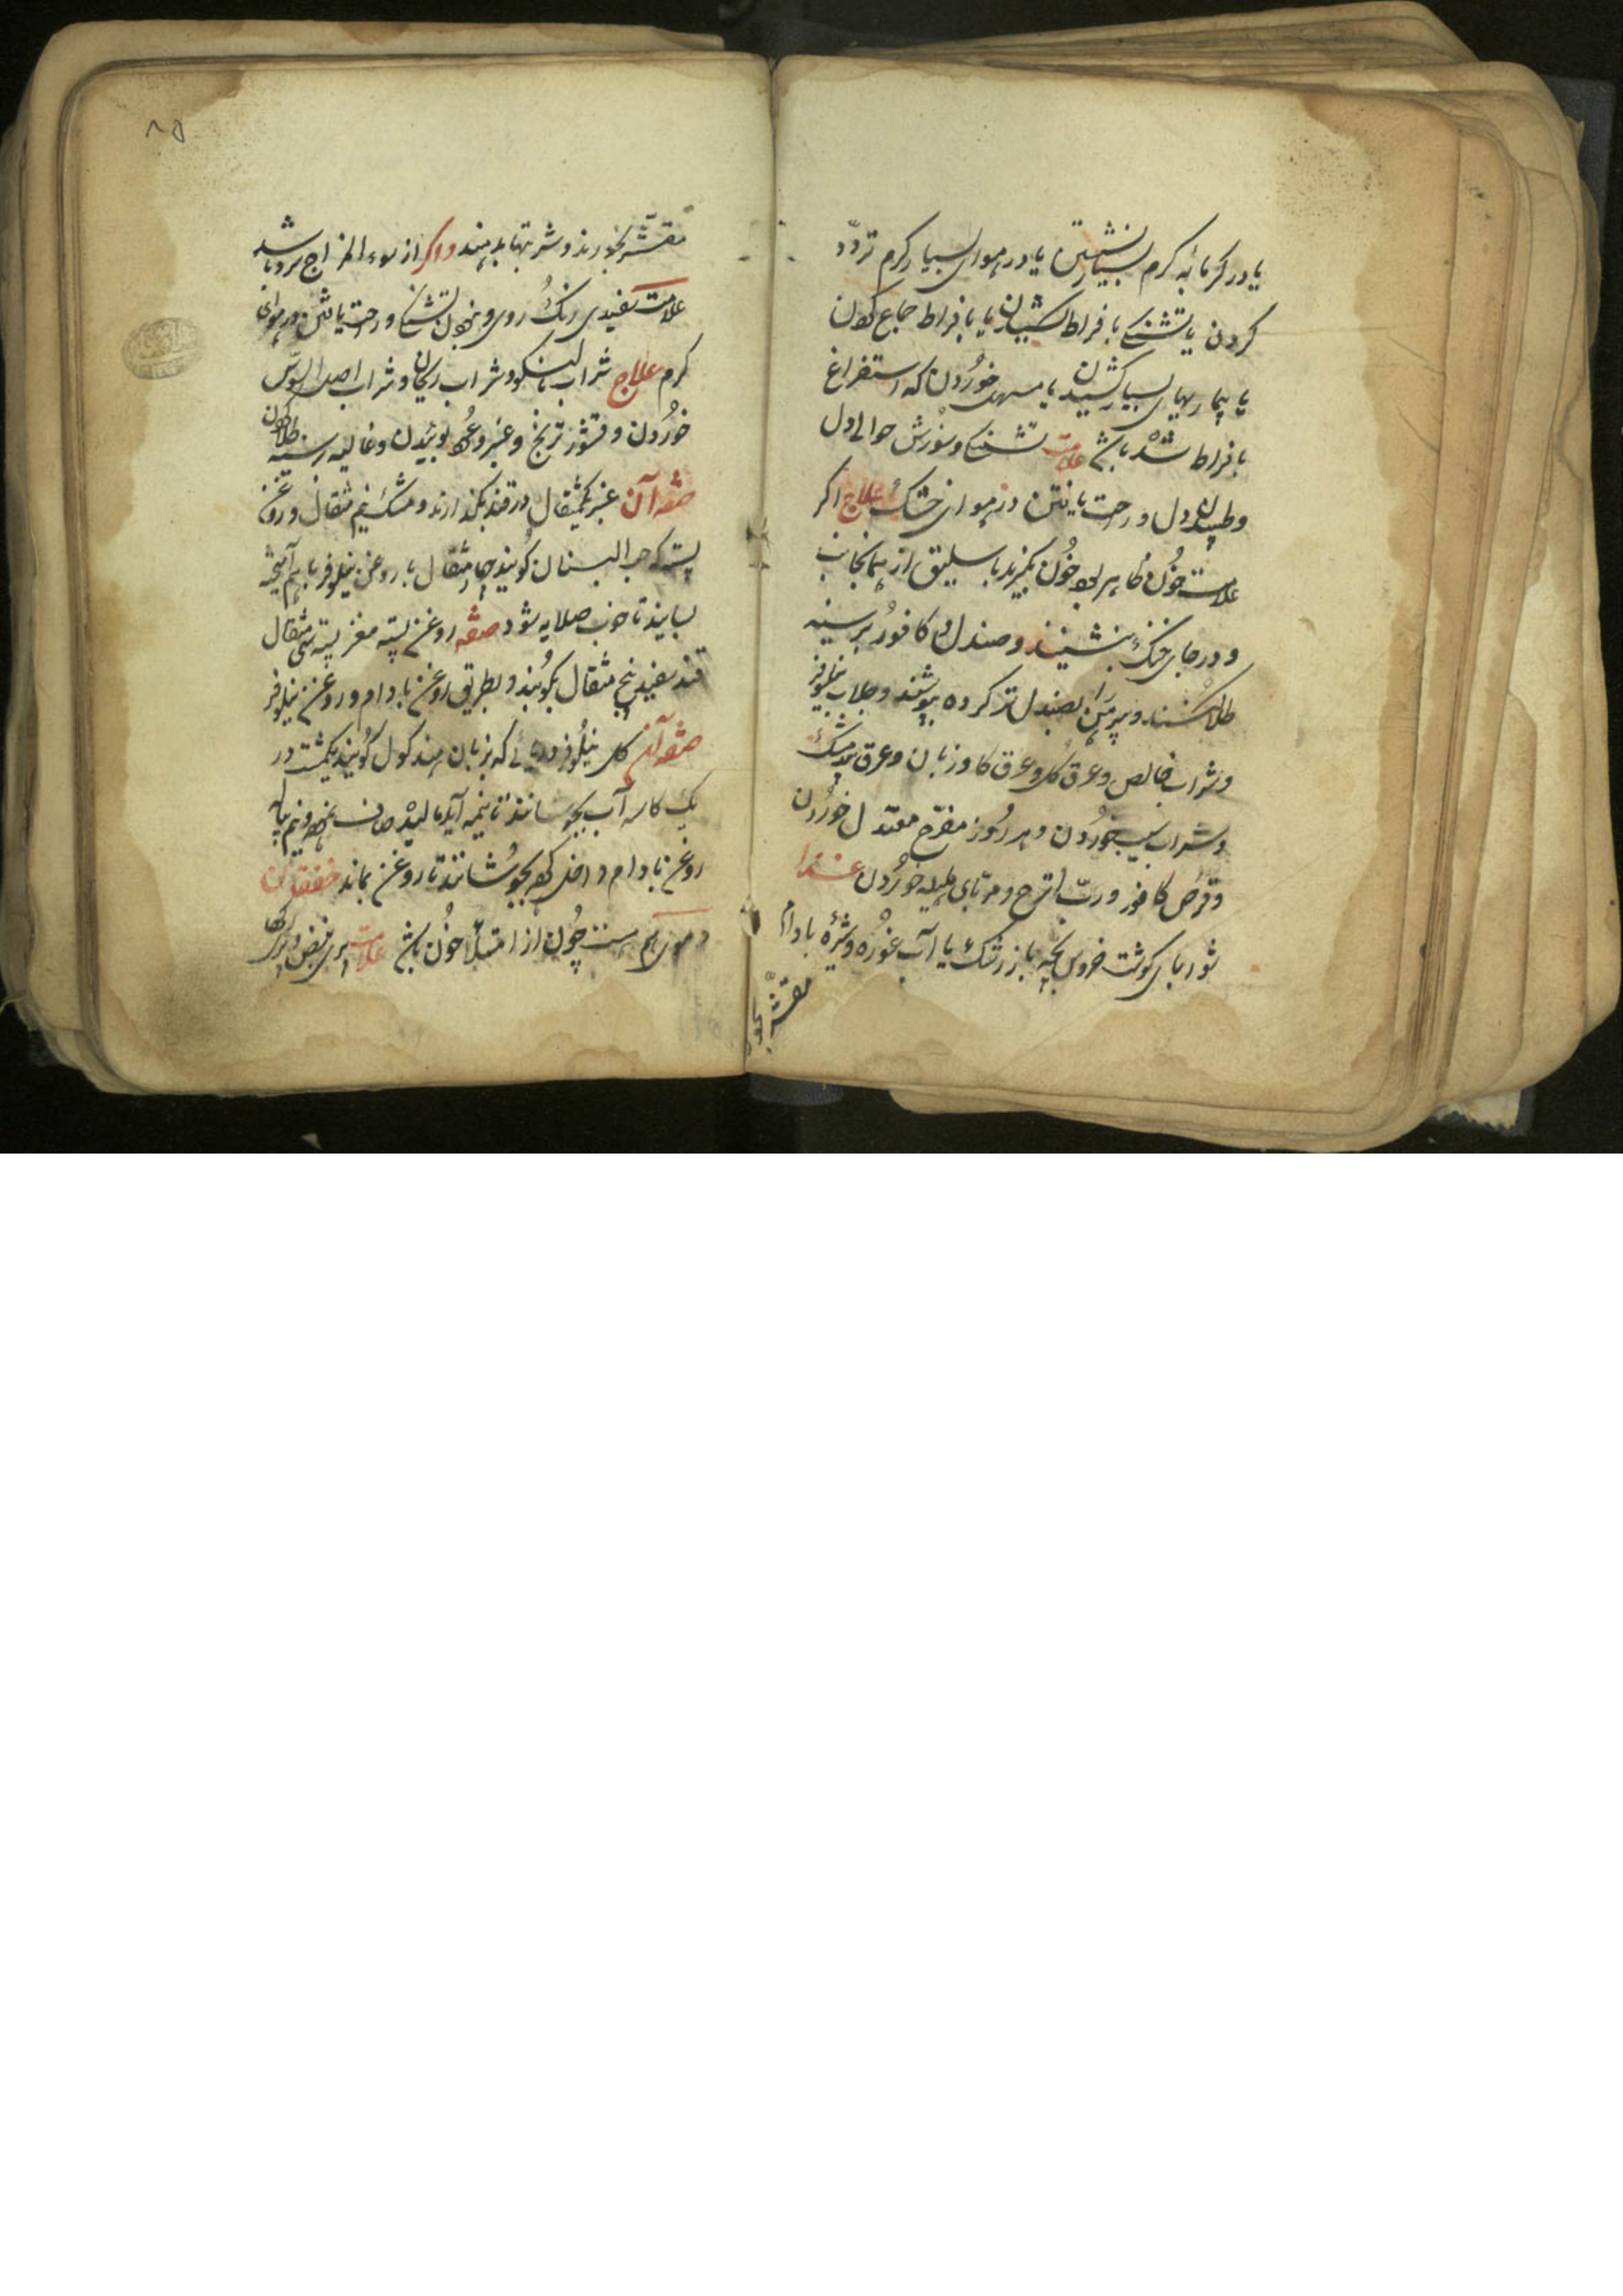 یا در گرمابهٔ گرم بسیار نشستن یا در هوای بسیار گرم تردّد
کردن یا تشنگی بافراط کشیدن یا بافراط جماع کردن
یا بیماریهای بسیار کشیدن یا مسهل خوردن که استفراغ
بافراط شده باشد علامت تشنگی و سوزش حوالی دل
و طپیدن دل و راحت یافتن در هوای خنک علاج اگر
علامت خون ظاهر بود خون بگیرند باسلیق از همانجانب
و در جای خنک بنشینند و صندل و کافور بر سینه
طلا کنند و پیرهن را بصندل تر کرده بپوشند و جلاب نیلوفر
و شراب خالص و عرق گل و عرق کاوزبان و عرق بیدمشک
و شراب سیب خوردن و هر روز مفرّح معتدل خوردن
و قرص کافور و ربّ اترج و مربّای هلیله خوردن غذا
شوربای کوشت خروس بچه با زرشک یا آب غوره و شیرهٔ بادام
مقشّر بخور
۸۵
مقشّر بخورند و شربتها بدهند و اگر از سوء المزاج سرد باشد
علامت سفیدی رنگ روی و نبودن تشنگی و راحت یافتن در هوای
گرم علاج شراب و شراب ریحانی و شراب اصل السوس
خوردن و قشور ترنج و عنبر و عود بوئیدن و غالیه بر سینه طلا کردن
صفه آن عنبر یکمثقال در قند بگدازند و مشک نیم مثقال و روغن
پسته که حب البستان گویند چهار مثقال با روغن نیلوفر باهم آمیخته
بسایند تا خوب صلایه شود صفه روغن پسته مغز پسته سی مثقال
قند سفید پنج مثقال بکوبند و بطریق روغن بادام و روغن نیلوفر
صفه آن گل نیلوفر دریائی که بزبان هند کول گویند یکمشت در
یک کاسه آب بجوشانند تا بنیمه آید مالیده صاف نموده و نیم پیاله
روغن بادام داخل کرده بجوشانند تا روغن بماند خفقان
دموی هم هست چون از امتلأ خون باشد علامت پری نبض و پری رگها